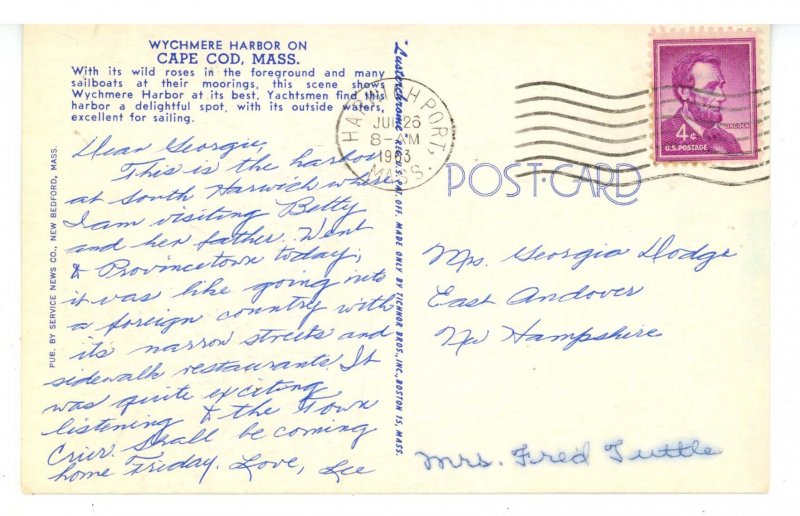 WYCHMERE HARBOR ON
CAPE COD, MASS.
With its wild roses in the foreground and many
sailboats at their moorings, this scene shows
Wychmere Harbor at its best. Yachtsmen find this
harbor a delightful spot, with its outside waters,
excellent for sailing.
Dear Georgie,
This is the harbor
at South Harwich where
I am visiting Betty
and her father. Went
to Provincetown today,
it was like going into
a foreign country with
its narrow streets and
sidewalk restaurants. It
was quite exciting
listening to the Town
Crier. Shall be coming
home Friday. Love, Lee
PUB. BY SERVICE NEWS CO., NEW BEDFORD, MASS.
"Lusterchrome" REG. U.S. PAT. OFF. MADE ONLY BY TICHNOR BROS., INC., BOSTON 15, MASS.
HARWICH PORT,
26
8- AM
1963
MASS.
4¢
LINCOLN
U.S. POSTAGE
POST CARD
Mrs. Georgia Dodge
East Andover
New Hampshire
Mrs. Fred Tuttle